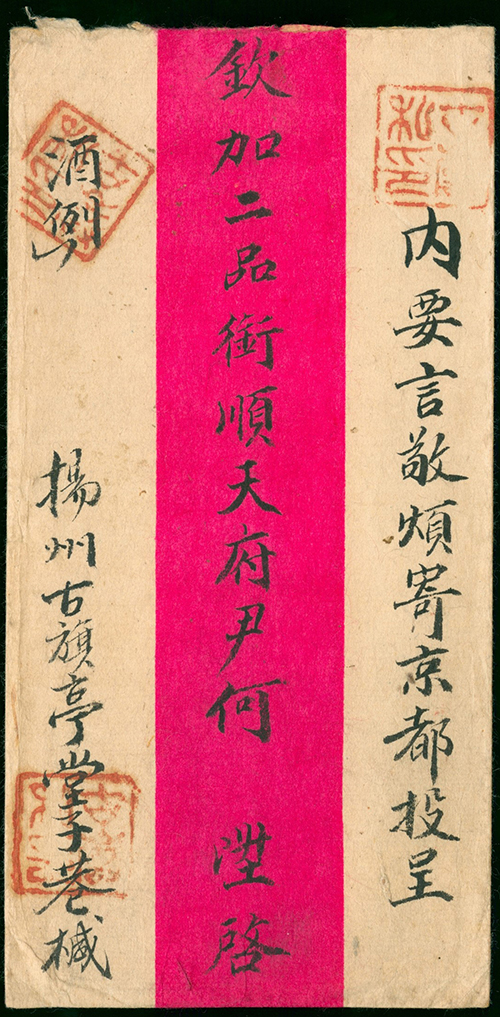 内要言敬煩寄京都投呈
欽加二品銜順天府尹何 陞啓
酒例
揚州古旗亭堂子巷椷